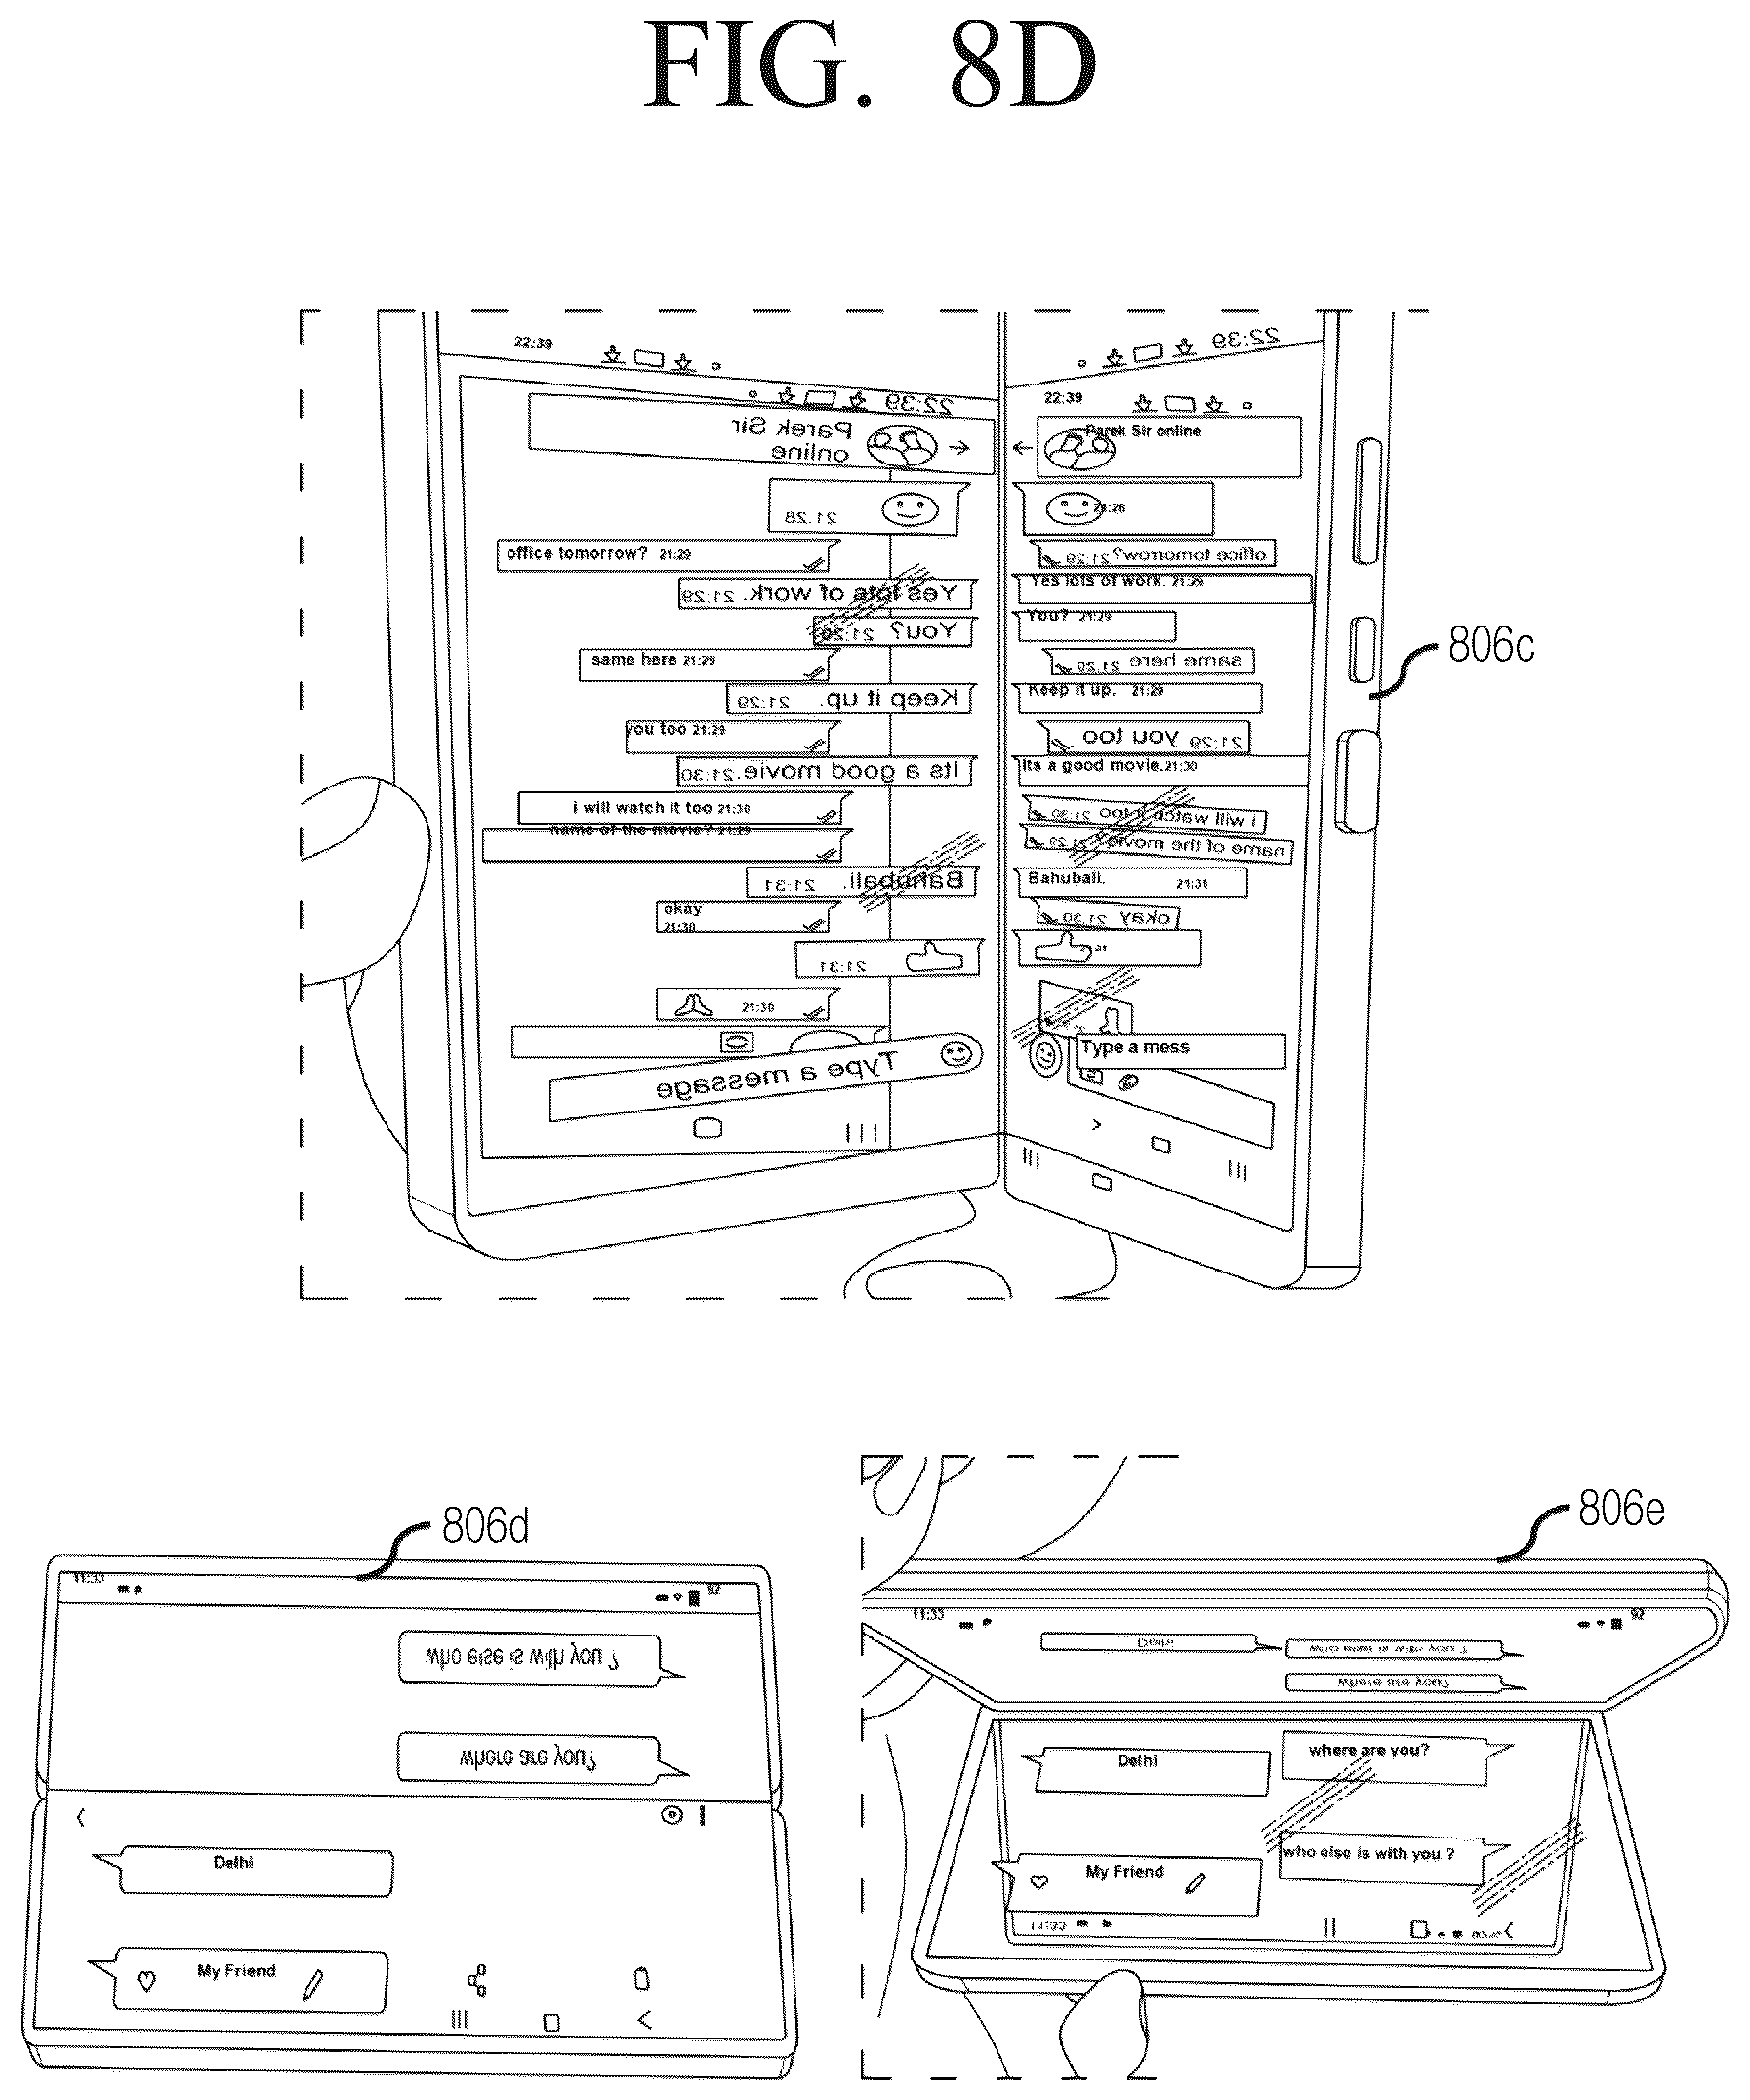 FIG. 8D
22:39
22:39
22:39
22:39
Parek Sir
online
Parek Sir online
21:28
21:28
office tomorrow? 21:29
office tomorrow? 21:29
Yes lots of work. 21:29
Yes lots of work. 21:29
You? 21:29
You? 21:29
same here 21:29
same here 21:29
Keep it up. 21:29
Keep it up. 21:29
you too 21:29
you too 21:29
Its a good movie. 21:30
Its a good movie. 21:30
i will watch it too 21:30
i will watch it too 21:30
name of the movie? 21:29
name of the movie? 21:29
Bahubali. 21:31
Bahubali. 21:31
okay
21:30
okay 21:30
21:31
21:30
Type a message
Type a mess
806c
806d
11:33
92
who else is with you ?
where are you?
Delhi
My Friend
806e
11:33
92
Delhi
who else is with you ?
where are you?
Delhi
where are you?
who else is with you ?
My Friend